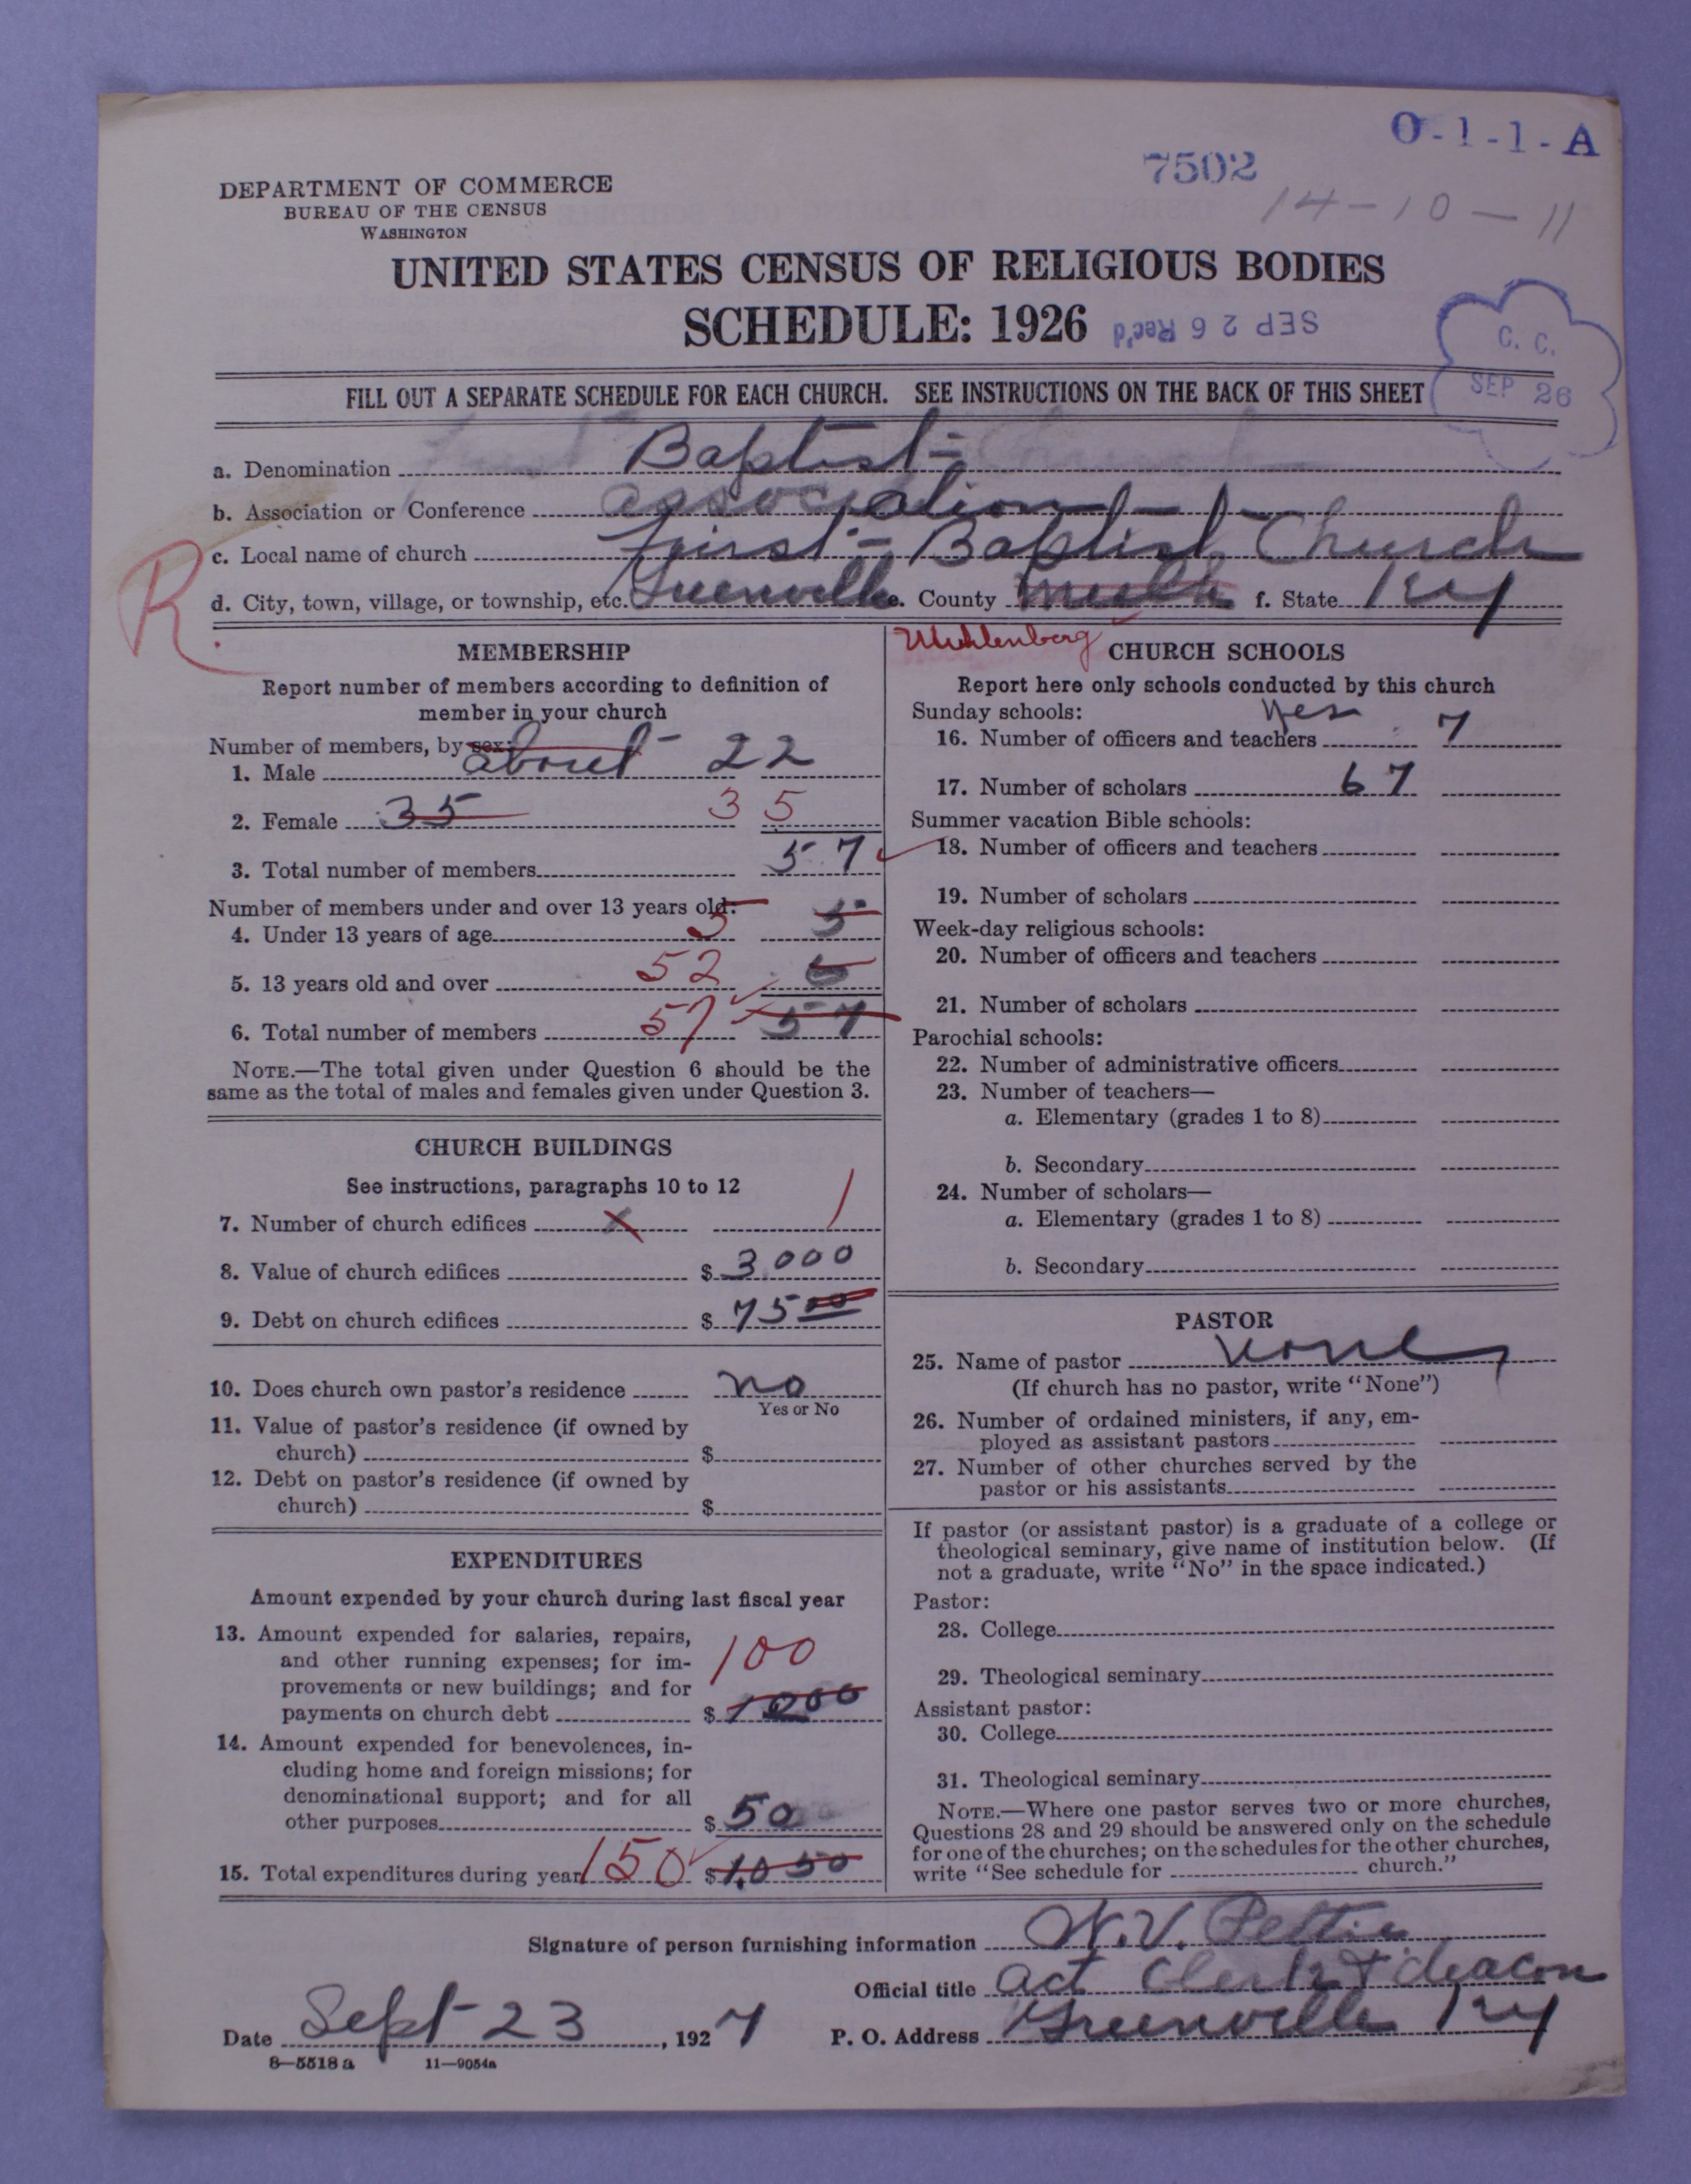 O-1-1-A
7502
14-10-11
DEPARTMENT OF COMMERCE
BUREAU OF THE CENSUS
WASHINGTON
UNITED STATES CENSUS OF RELIGIOUS BODIES
SCHEDULE: 1926
SEP 26 Rec'd
C. C.
SEP 26
FILL OUT A SEPARATE SCHEDULE FOR EACH CHURCH. SEE INSTRUCTIONS ON THE BACK OF THIS SHEET
a. Denomination Baptist
b. Association or Conference association
c. Local name of church First Baptist Church
d. City, town, village, or township, etc. Greenville e. County Muhl f. State Ky
R.
Muhlenberg
MEMBERSHIP
Report number of members according to definition of
member in your church
Number of members, by sex:
1. Male about 22
2. Female 35 35
3. Total number of members 57
Number of members under and over 13 years old:
4. Under 13 years of age 5 5
5. 13 years old and over 52
6. Total number of members 57 57
NOTE.—The total given under Question 6 should be the
same as the total of males and females given under Question 3.
CHURCH BUILDINGS
See instructions, paragraphs 10 to 12
7. Number of church edifices 1
8. Value of church edifices $ 3.000
9. Debt on church edifices $ 75 00
10. Does church own pastor's residence no
Yes or No
11. Value of pastor's residence (if owned by
church) $
12. Debt on pastor's residence (if owned by
church) $
EXPENDITURES
Amount expended by your church during last fiscal year
13. Amount expended for salaries, repairs,
and other running expenses; for im-
provements or new buildings; and for
payments on church debt $ 100
1000
14. Amount expended for benevolences, in-
cluding home and foreign missions; for
denominational support; and for all
other purposes $ 50
15. Total expenditures during year 150 $ 1,050
CHURCH SCHOOLS
Report here only schools conducted by this church
Sunday schools: Yes
16. Number of officers and teachers 7
17. Number of scholars 67
Summer vacation Bible schools:
18. Number of officers and teachers
19. Number of scholars
Week-day religious schools:
20. Number of officers and teachers
21. Number of scholars
Parochial schools:
22. Number of administrative officers
23. Number of teachers—
a. Elementary (grades 1 to 8)
b. Secondary
24. Number of scholars—
a. Elementary (grades 1 to 8)
b. Secondary
PASTOR
25. Name of pastor none
(If church has no pastor, write "None")
26. Number of ordained ministers, if any, em-
ployed as assistant pastors
27. Number of other churches served by the
pastor or his assistants
If pastor (or assistant pastor) is a graduate of a college or
theological seminary, give name of institution below. (If
not a graduate, write "No" in the space indicated.)
Pastor:
28. College
29. Theological seminary
Assistant pastor:
30. College
31. Theological seminary
NOTE.—Where one pastor serves two or more churches,
Questions 28 and 29 should be answered only on the schedule
for one of the churches; on the schedules for the other churches,
write "See schedule for church."
Signature of person furnishing information
Official title act Clerk & deacon
Date Sept 23, 1927 P. O. Address Greenville Ky
8—5518 a 11—9054a